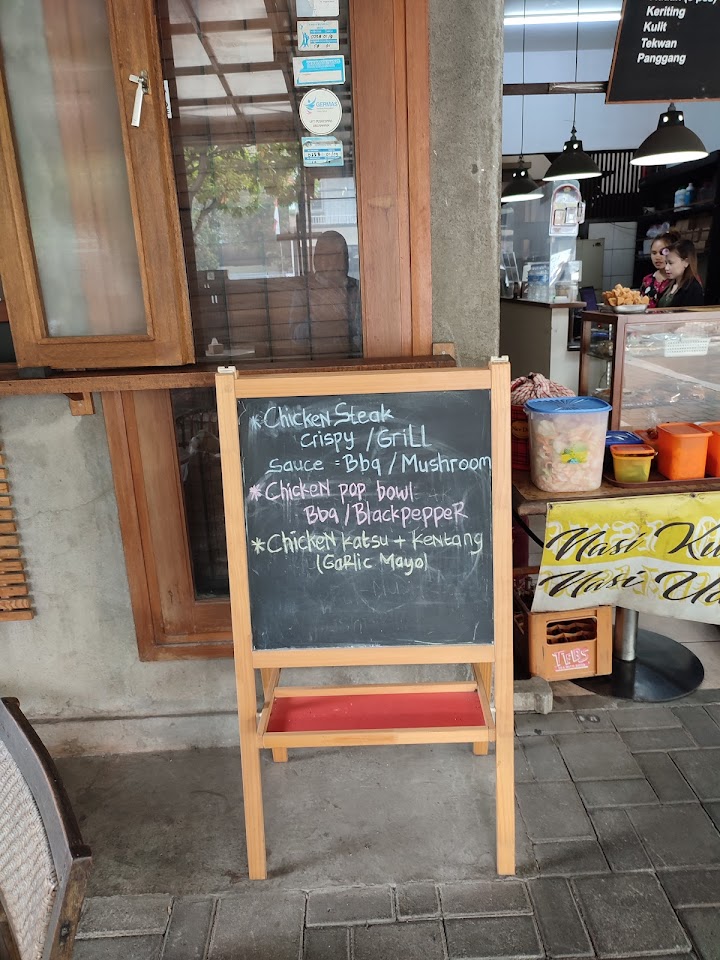 Keriting
Kulit
Tekwan
Panggang
GERMAS
*Chicken Steak
Crispy / Grill
Sauce = Bbq / Mushroom
*Chicken pop bowl
Bbq / Blackpepper
*Chicken katsu + kentang
(Garlic Mayo)
Nasi Ku
Nasi Ud
TEBS